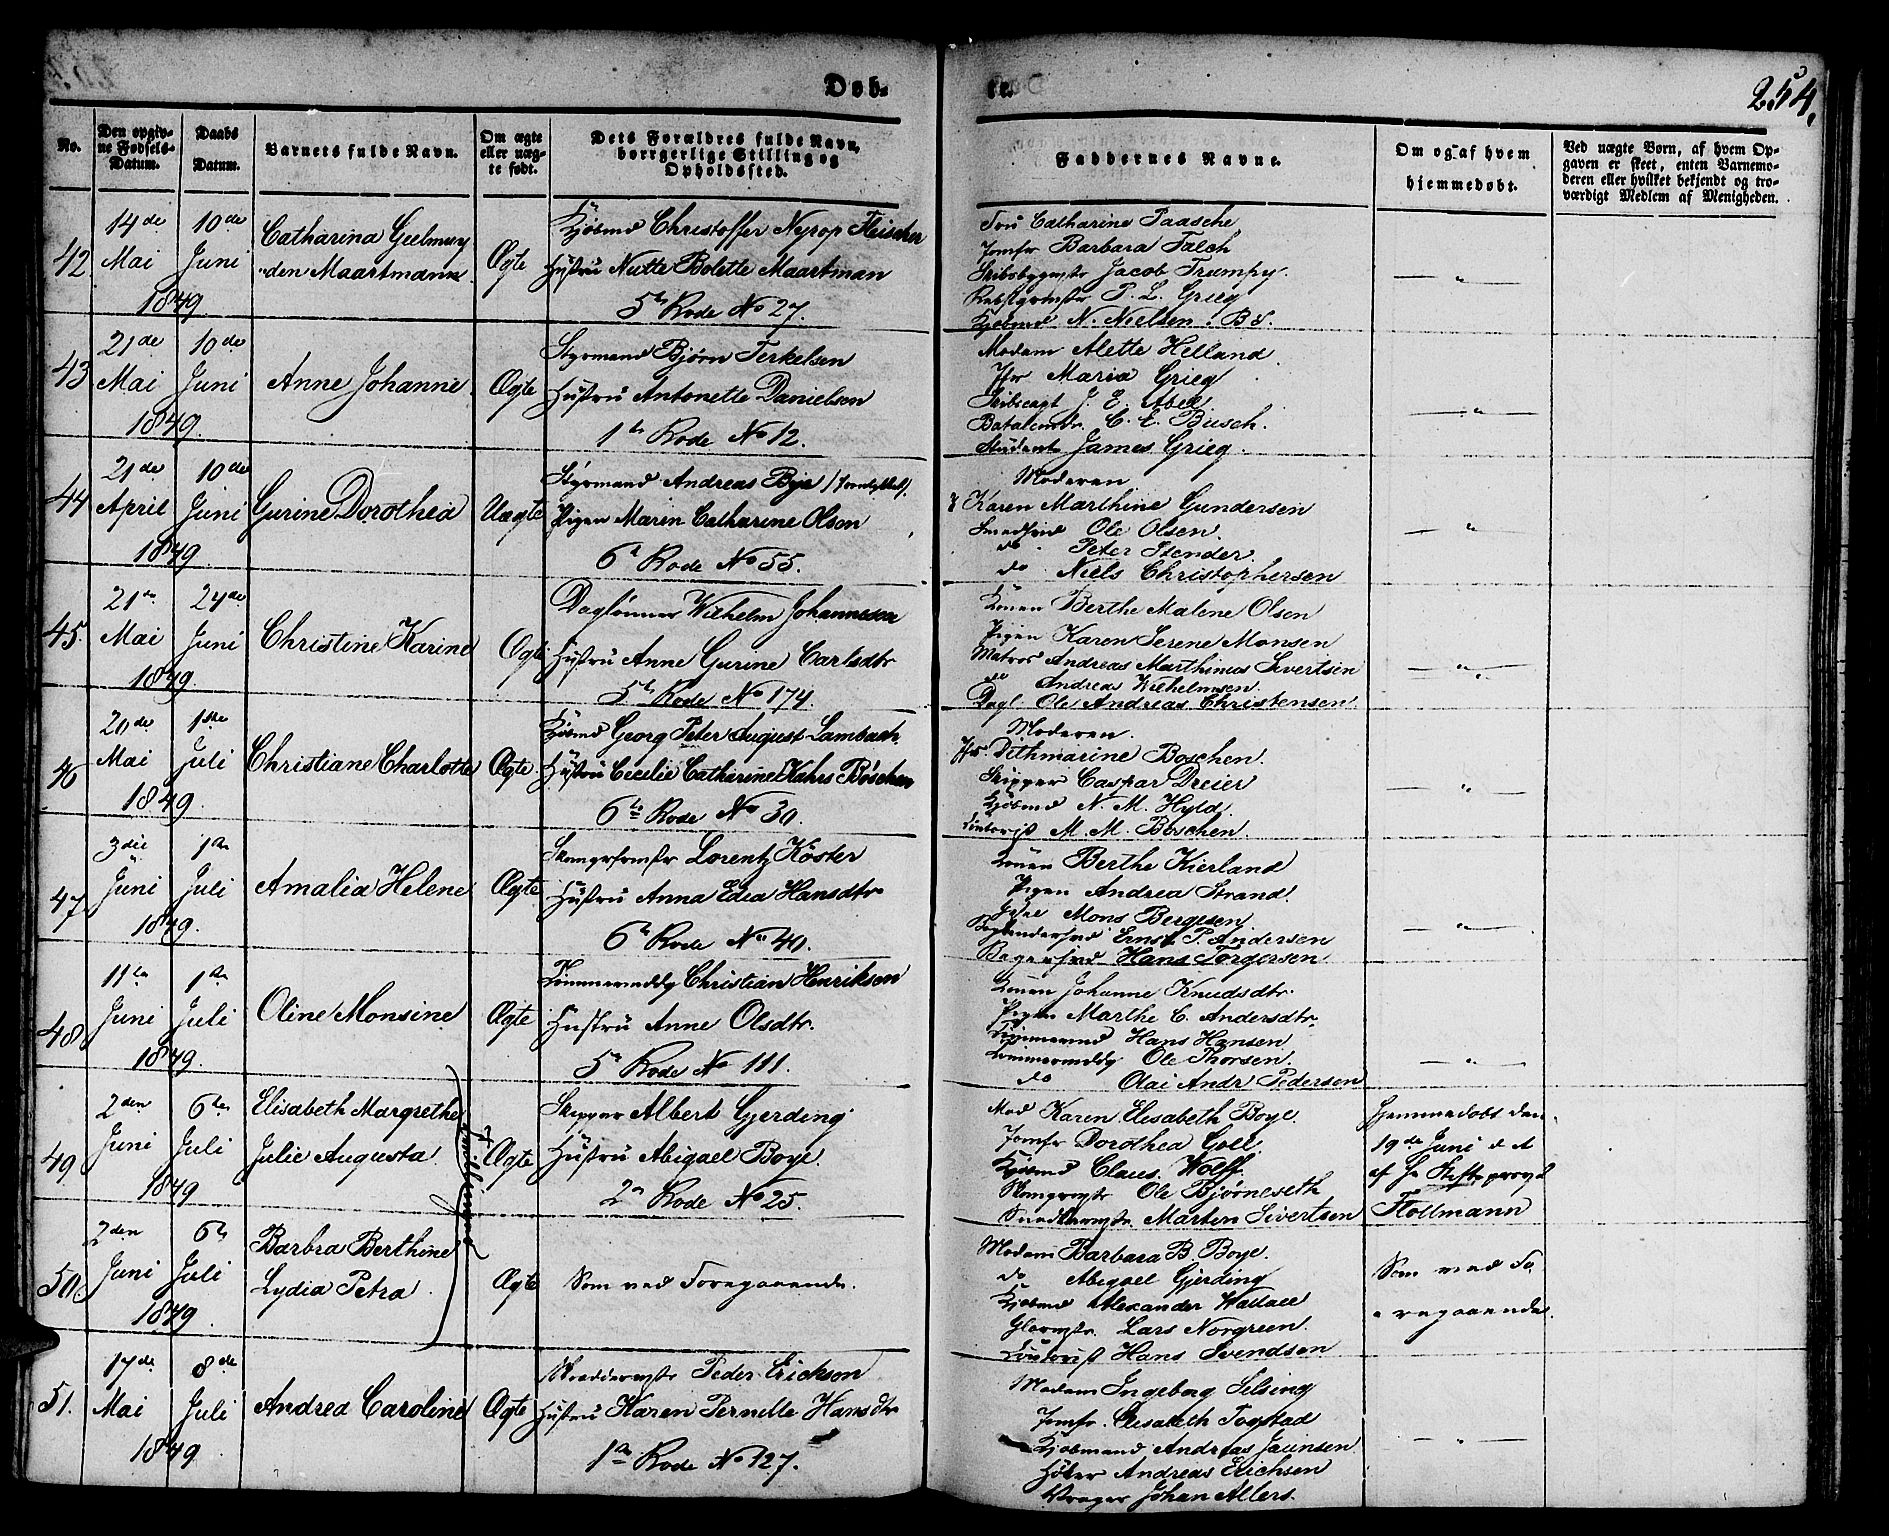 Døb-
te.
254.
No.
Den opgiv-
ne Fødsels-
Datum.
Daabs
Datum.
Barnets fulde Navn.
Om ægte
eller uæg-
te født.
Dets Forældres fulde Navn,
borgerlige Stilling og
Opholdssted.
Faddernes Navne.
Om og af hvem
hjemmedøbt.
Ved uægte Børn, af hvem Op-
gaven er skeet, enten Barnemo-
deren eller hvilket bekjendt og tro-
værdigt Medlem af Menigheden.
42
14de Mai 1849
10de Juni
Catharina Gelmuy-
-den Maartmann
Ægte
Kjøbmd Christoffer Nyrop Fleischer
Hustru Nutte Bolette Maartman
5te Rode No 27.
Fru Catharine Paasche
Jomfr Barbara Falch
Skibsbygmstr Jacob Trumpy.
P. L. Grieg
Kjøbmd N. Nielsen. B S.
— " —
43
21de Mai 1849.
10de Juni
Anne Johanne
Ægte
Styrmand Bjørn Terkelsen
Hustru Antonette Danielsen
1te Rode No 12.
Madam Alette Helland
Jfr Maria Grieg
J. E. Abel
C. E. Busch.
Student James Grieg
— " —
44
21de April 1849
10de Juni
Gurine Dorothea
Uægte
Styrmand Andreas Bye
Pigen Marin Catharine Olson
6te Rode No 55.
Moderen
Karen Marthine Gundersen
Smedsvd Ole Olsen
do Peter Stender
do Niels Christophersen
— " —
45.
21de Mai 1849
24de Juni
Christine Karine
Ægte
Daglønner Wilhelm Johannesen
Hustru Anne Gurine Carlsdtr
5te Rode No 174.
Konen Berthe Malene Olsen
Pigen Karen Serene Monsen
Matros Andreas Marthinus Sivertsen
do Andreas Wilhelmsen
Dagl. Ole Andreas Christensen
— " —
46
20de Mai 1849
1ste Juli
Christiane Charlotte
Ægte
Kjøbmd Georg Peter August Lambach
Hustru Cecilie Catharine Kahrs Bøschen
6te Rode No 30.
Moderen.
Jfr. Dethmarine Boschen.
Skipper Caspar Dreier
Kjøbmd N. M. Hyld
Contorist M. M. Boschen.
— " —
47
3die Juni 1849.
1te Juli
Amalia Helene
Ægte
Lorentz Köster
Hustru Anna Edea Hansdtr
6te Rode No 40.
Konen Berthe Kierland
Pigen Andrea Strand.
Mons Bergesen
Ernst P. Andersen
Bagersvd Hans Torgersen
— " —
48
11te Juni 1849.
1te Juli
Oline Monsine
Ægte
Tømmermdg Christian Henriksen
Hustru Anne Olsdtr.
5te Rode No 111.
Konen Johanne Knudsdtr.
Pigen Marthe C. Andersdtr.
Tømmermd Hans Hansen
Tømmermdg Ole Thorsen
do Olai Andr Pedersen
— " —
49
2den Juni 1849
6te Juli
Elisabeth Margrethe
Julie Augusta.
Tvillinger
Ægte
Skipper Albert Gjerding
Hustru Abigael Boye.
2den Rode No 25.
Mad Karen Elisabeth Boye.
Jomfr Dorothea Goll.
Kjøbmd Claus Wolff.
Ole Bjørneseth
Marten Sivertsen
Hjemmedøbt den
19de Juni d A
af Hr Stiftsprovst
Hollmann
50.
2den Juni 1849
6te Juli
Barbra Berthine
Lydia Petra
Ægte
Som ved Foregaaende.
Madam Barbara B. Boye.
do Abigael Gjerding
Kjøbmd Alexander Wallace
Glarmstr. Lars Norgreen.
Contorist Hans Svendsen
Som ved Fo-
-regaaende.
51.
17de Mai 1849
8de Juli
Andrea Caroline
Ægte
Skreddermstr Peder Erickson
Hustru Karen Pernelle Hansdtr
1te Rode No 127.
Madam Ingeborg Selsing
Jomfr. Elisabeth Togstad
Kjøbmand Andreas Jaunsen
Høker Andreas Erichsen
Vrager Johan Allers.
— " —